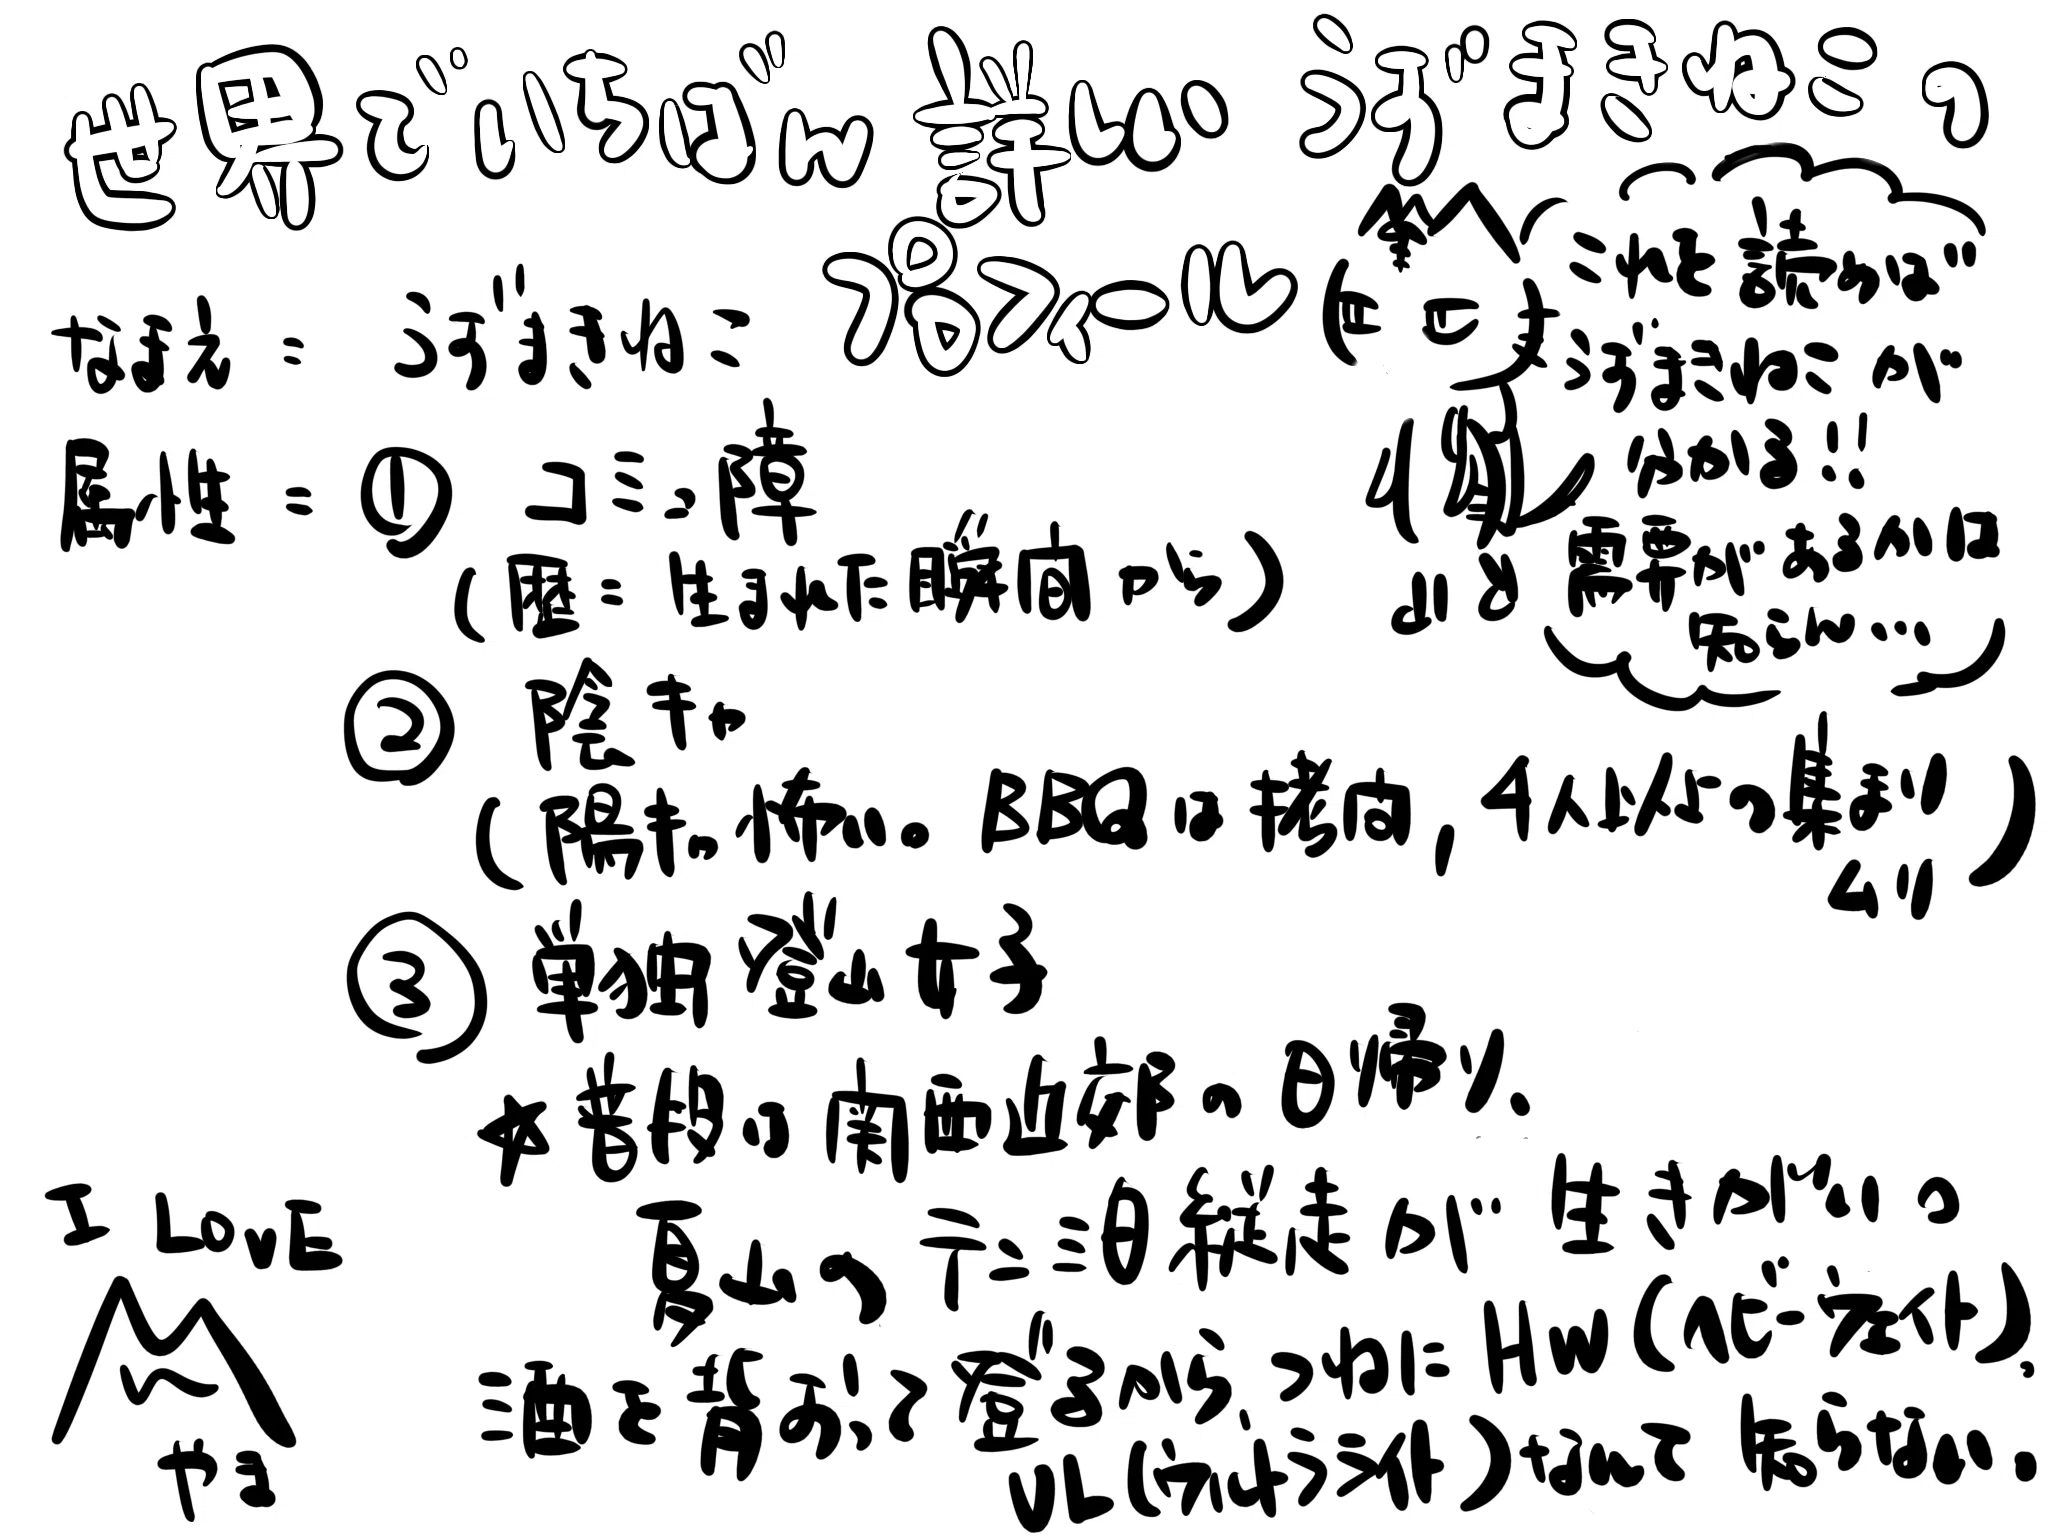 世界でいちばん詳しい うずまきねこの
プロフィール
これを読めば
うずまきねこが
分かる!!
需要があるかは
知らん…
なまえ = うずまきねこ
属性 = ① コミュ障
(歴 = 生まれた瞬間から)
② 陰キャ
(陽キャ怖い。BBQは拷問, 4人以上の集まり
ムリ)
③ 単独登山女子
☆普段は関西近郊の日帰り、
夏山のテン泊縦走が生きがいの
酒を背おって登るから、つねにHW(ヘビーウェイト)、
UL(ウルトラライト)なんて知らない。
I LOVE
やま